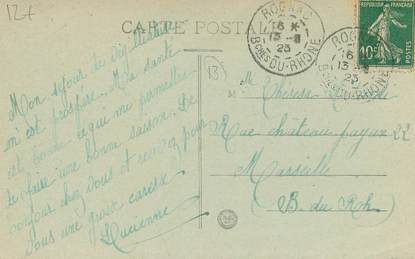 12+
CARTE POSTALE
ROGNAC
16 *
13 - 8
23
BCHES DU-RHÔNE
ROGNAC
16
13
23
BCHES DU-RHÔNE
RÉPUBLIQUE FRANÇAISE
10c
POSTES
13
Mon séjour de
m'est prospère. Ma santé
est bonne ce qui me permettra
de faire une bonne saison. Le
bonjour chez vous et recevez pour
vous une grosse caresse
Lucienne
M Thérèse
Rue château payan 22
Marseille
(B. du Rh)